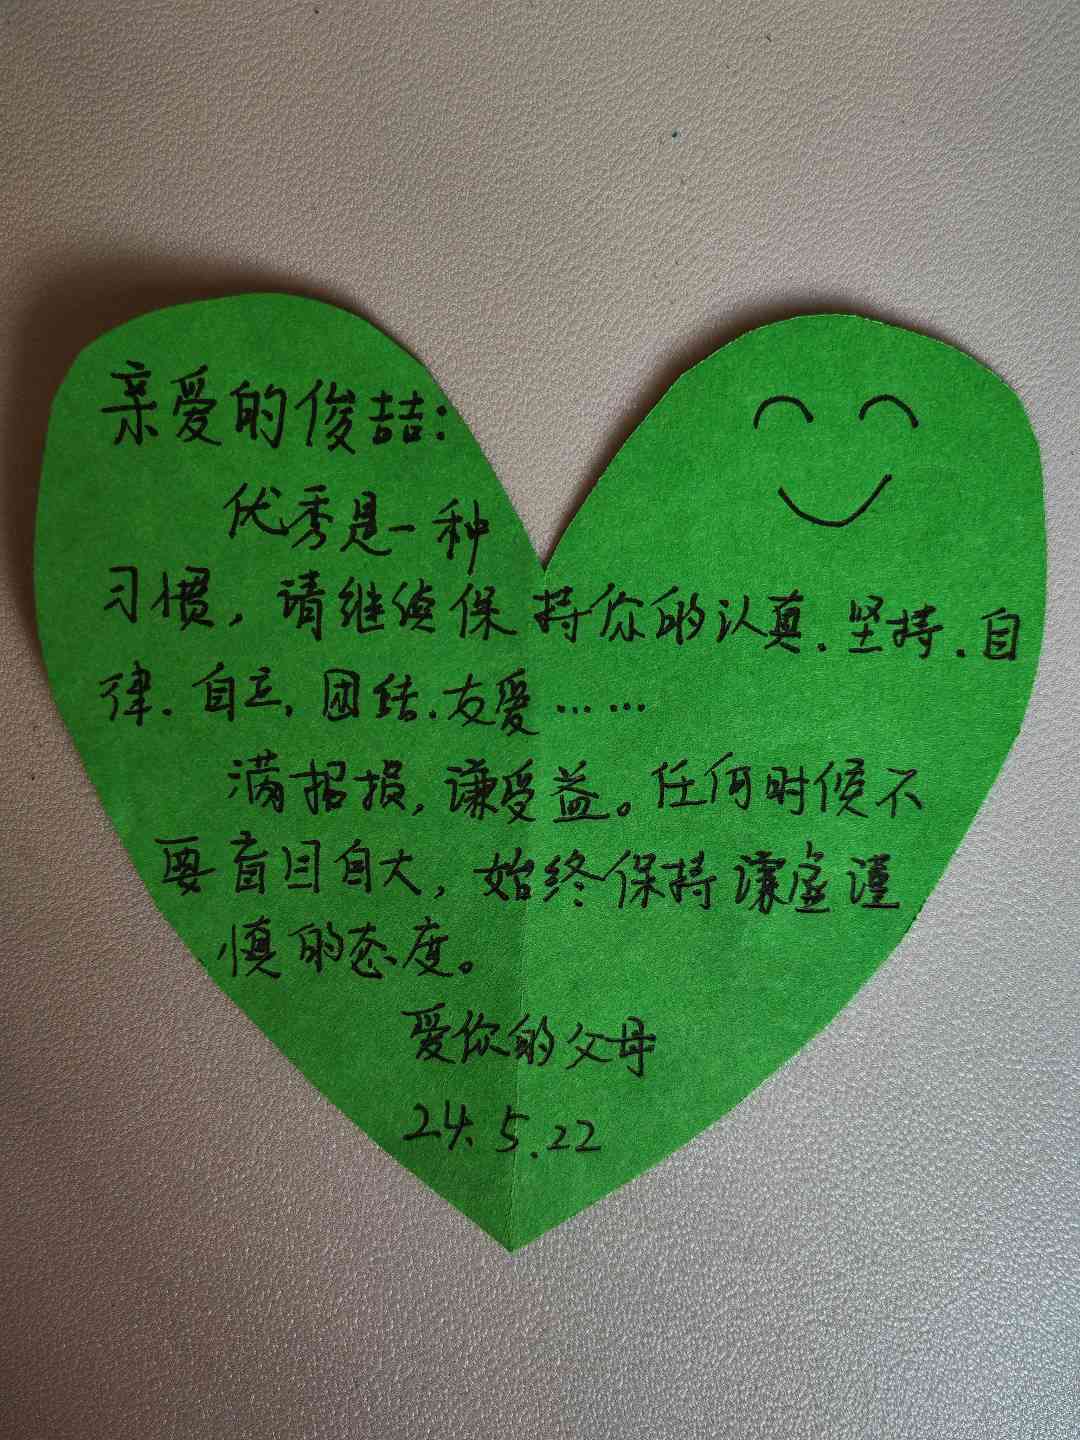 亲爱的俊喆：
优秀是一种
习惯，请继续保持你的认真、坚持、自
律、自立、团结、友爱……
满招损，谦受益。任何时候不
要盲目自大，始终保持谦虚谨
慎的态度。
爱你的父母
24.5.22